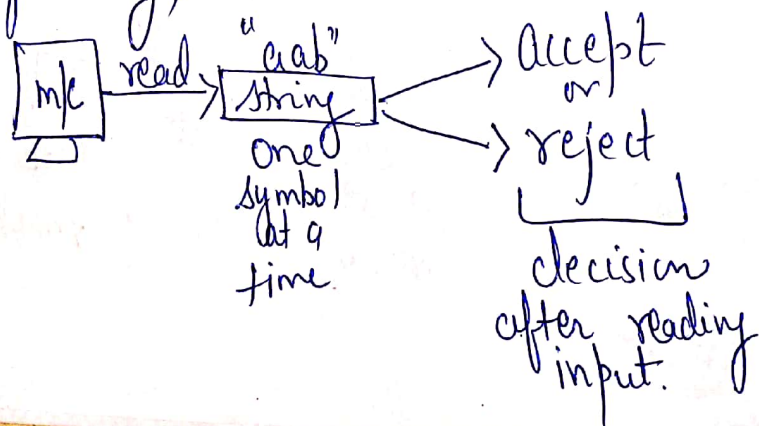 m/c
read
"aab"
string
one
symbol
at a
time.
accept
or
reject
decision
after reading
input.